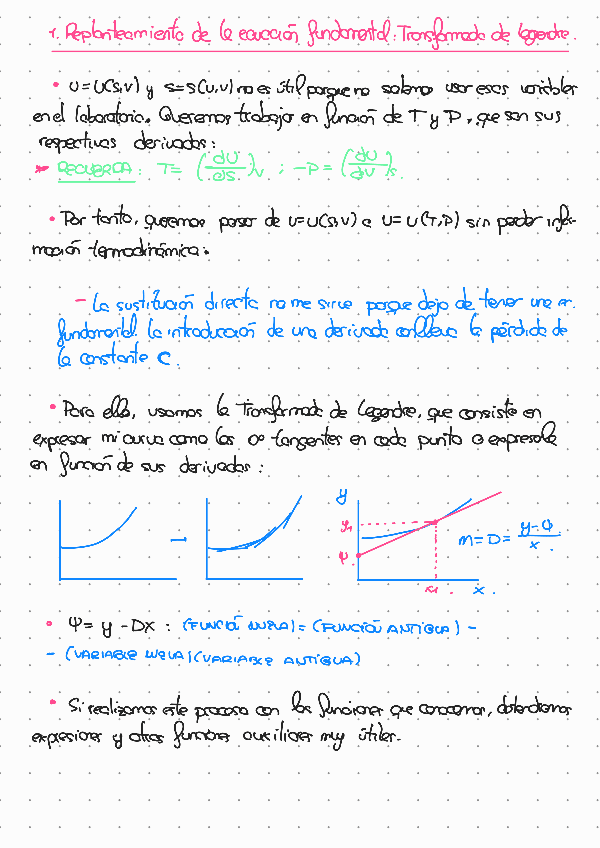 1. Replanteamiento de la ecuación fundamental: Transformada de Legendre.
• U=U(S,V) y S=S(U,V) no es útil porque no solemos usar esas variables
en el laboratorio. Queremos trabajar en función de T y P, que son sus
respectivas derivadas:
RECUERDA: T= (dU/dS)v ; -P= (dU/dV)s
• Por tanto, queremos pasar de U=U(S,V) a U=U(T,P) sin perder infor-
mación termodinámica.
- La sustitución directa no me sirve porque dejo de tener una ec.
fundamental. La introducción de una derivada conlleva la pérdida de
la constante C.
• Para ello, usamos la Transformada de Legendre, que consiste en
expresar mi curva como las oo tangentes en cada punto o expresarla
en función de sus derivadas:
y
y₁
Ψ
x₁. x.
m=D= (y-Ψ)/x.
• Ψ= y -Dx : (FUNCIÓN NUEVA)=(FUNCIÓN ANTIGUA) -
- (VARIABLE NUEVA)(VARIABLE ANTIGUA)
• Si realizamos este proceso con las funciones que conocemos, obtendremos
expresiones y otras funciones auxiliares muy útiles.